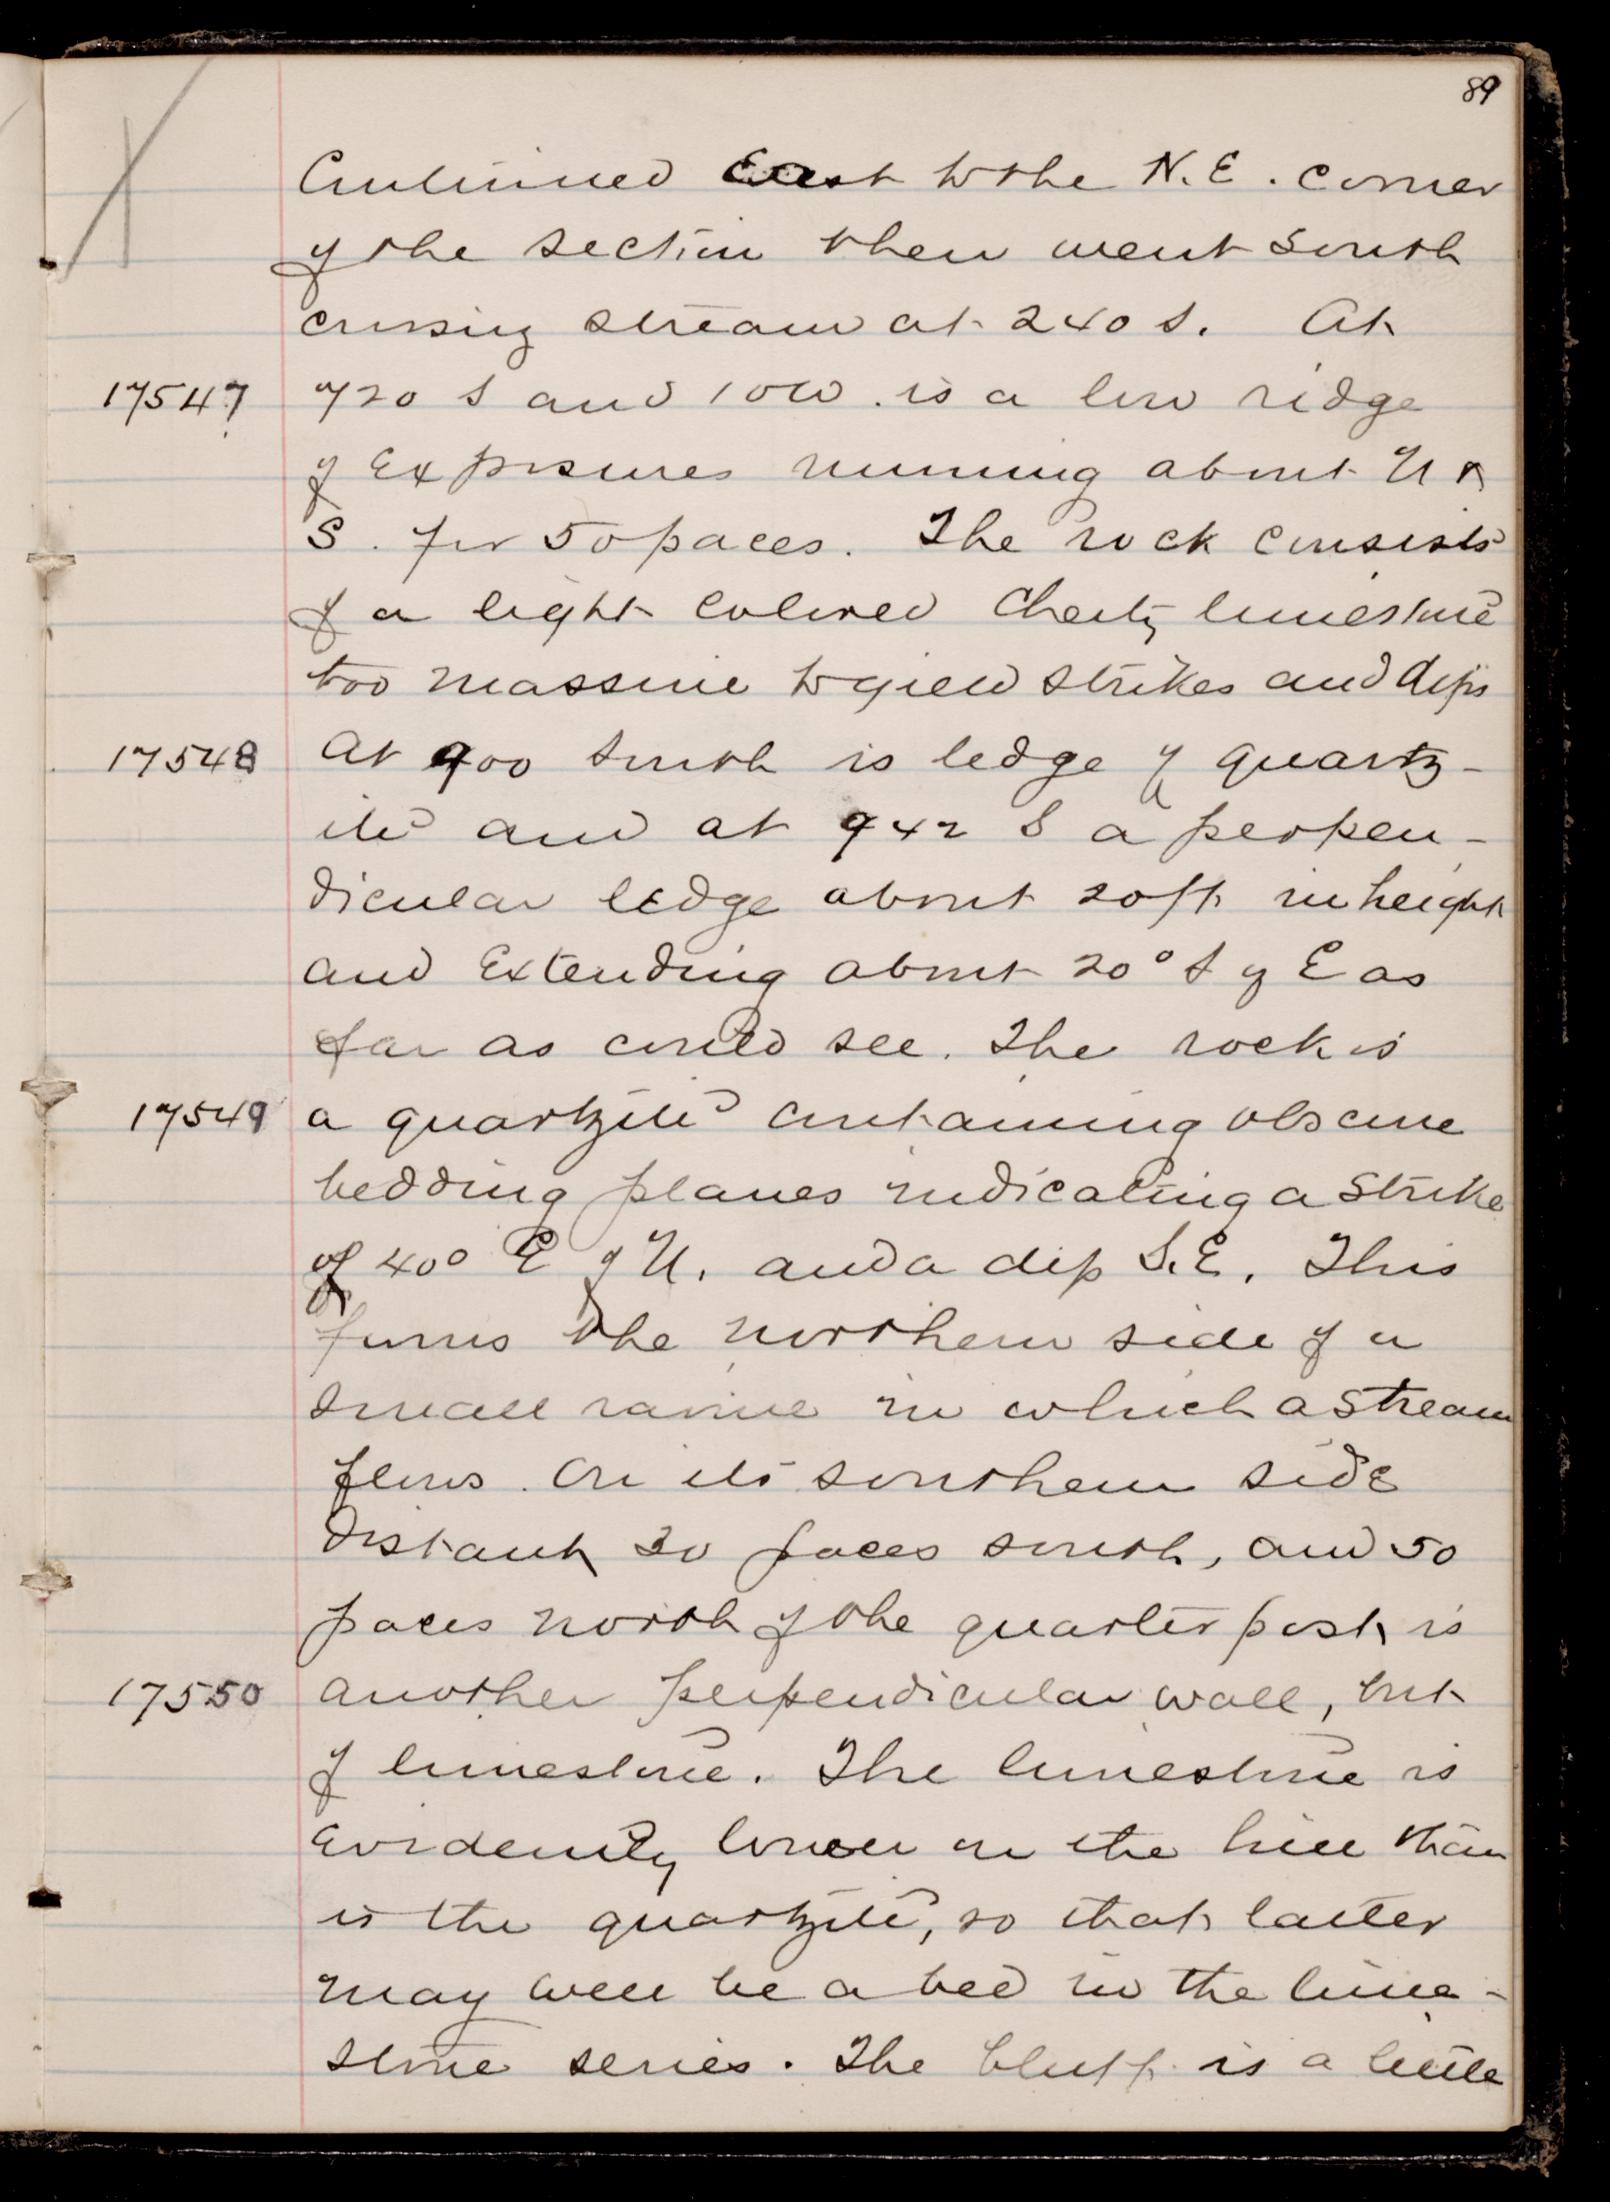 89
Continued East to the N.E. corner
of the section then went South
crossing stream at 240 S. At
17547 720 S and 10 W. is a low ridge
of Exposures running about N &
S. for 50 paces. The rock consists
of a light colored Cherty limestone
too massive to yield strikes and dips
17548 At 900 South is ledge of quartz-
ite and at 942 S a perpen-
dicular ledge about 20 ft in height
and Extending about 20° S of E as
far as could see. The rock is
17549 a quartzite containing obscure
bedding planes indicating a strike
of 40° E of N. and a dip S.E. This
forms the northern side of a
small ravine in which a stream
flows. On its southern side
distant 30 paces south, and 50
paces north of the quarter post is
17550 another perpendicular wall, but
of limestone. The limestone is
Evidently lower in the hill than
is the quartzite, so that latter
may well be a bed in the lime-
stone series. The bluff is a little